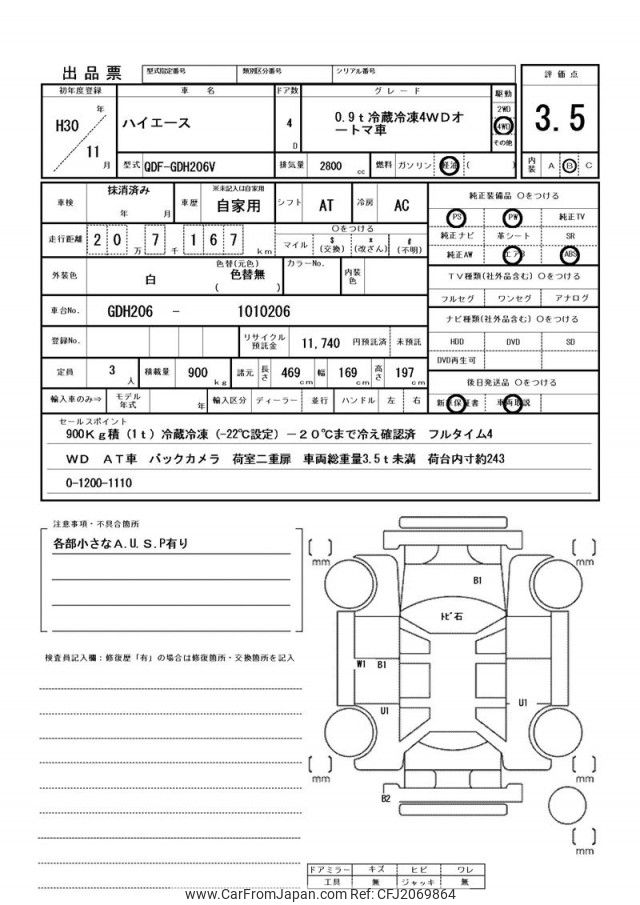 出品票
型式指定番号 類別区分番号 シリアル番号
初年度登録 車名 ドア数 グレード 駆動 評価点
H30 年 ハイエース 4 D 0.9t冷蔵冷凍4WDオ 2WD 3.5
ートマ車 4WD
11 月 その他
型式 QDF-GDH206V 排気量 2800 cc 燃料 ガソリン 軽油 ( ) 内装 A B C
車検 抹消済み 年 月 車歴 ※未記入は自家用 自家用 シフト AT 冷房 AC 純正装備品 〇をつける
PS PW 純正TV
走行距離 20 万 7 千 167 km 〇をつける
マイル $(交換) *(改ざん) #(不明) 純正ナビ 革シート SR
純正AW エアB ABS
外装色 白 色替(元色) 色替無 ( ) カラーNo. 内装色 TV種類(社外品含む) 〇をつける
フルセグ ワンセグ アナログ
車台No. GDH206 - 1010206 ナビ種類(社外品含む) 〇をつける
登録No. リサイクル預託金 11,740 円預託済 未預託 HDD DVD SD
DVD再生可
定員 3 人 積載量 900 kg 諸元 長さ 469 cm 幅 169 cm 高さ 197 cm 後日発送品 〇をつける
輸入車のみ⇒ モデル年式 年 輸入区分 ディーラー 並行 ハンドル 左 右 新車保証書 車両取説
セールスポイント
900Kg積（1t）冷蔵冷凍（-22℃設定）－20℃まで冷え確認済 フルタイム4
WD AT車 バックカメラ 荷室二重扉 車両総重量3.5t未満 荷台内寸約243
0-1200-1110
注意事項・不具合箇所
各部小さなA.U.S.P有り
検査員記入欄：修復歴「有」の場合は修復箇所・交換箇所を記入
[ ] mm [ ] mm
B1
ﾄﾋﾞ石
W1 B1
U1 U1
[ ] mm [ ] mm
B2
[ ] mm
ドアミラー キズ ヒビ ワレ
工具 無 ジャッキ 無
www.CarFromJapan.com Ref: CFJ2069864